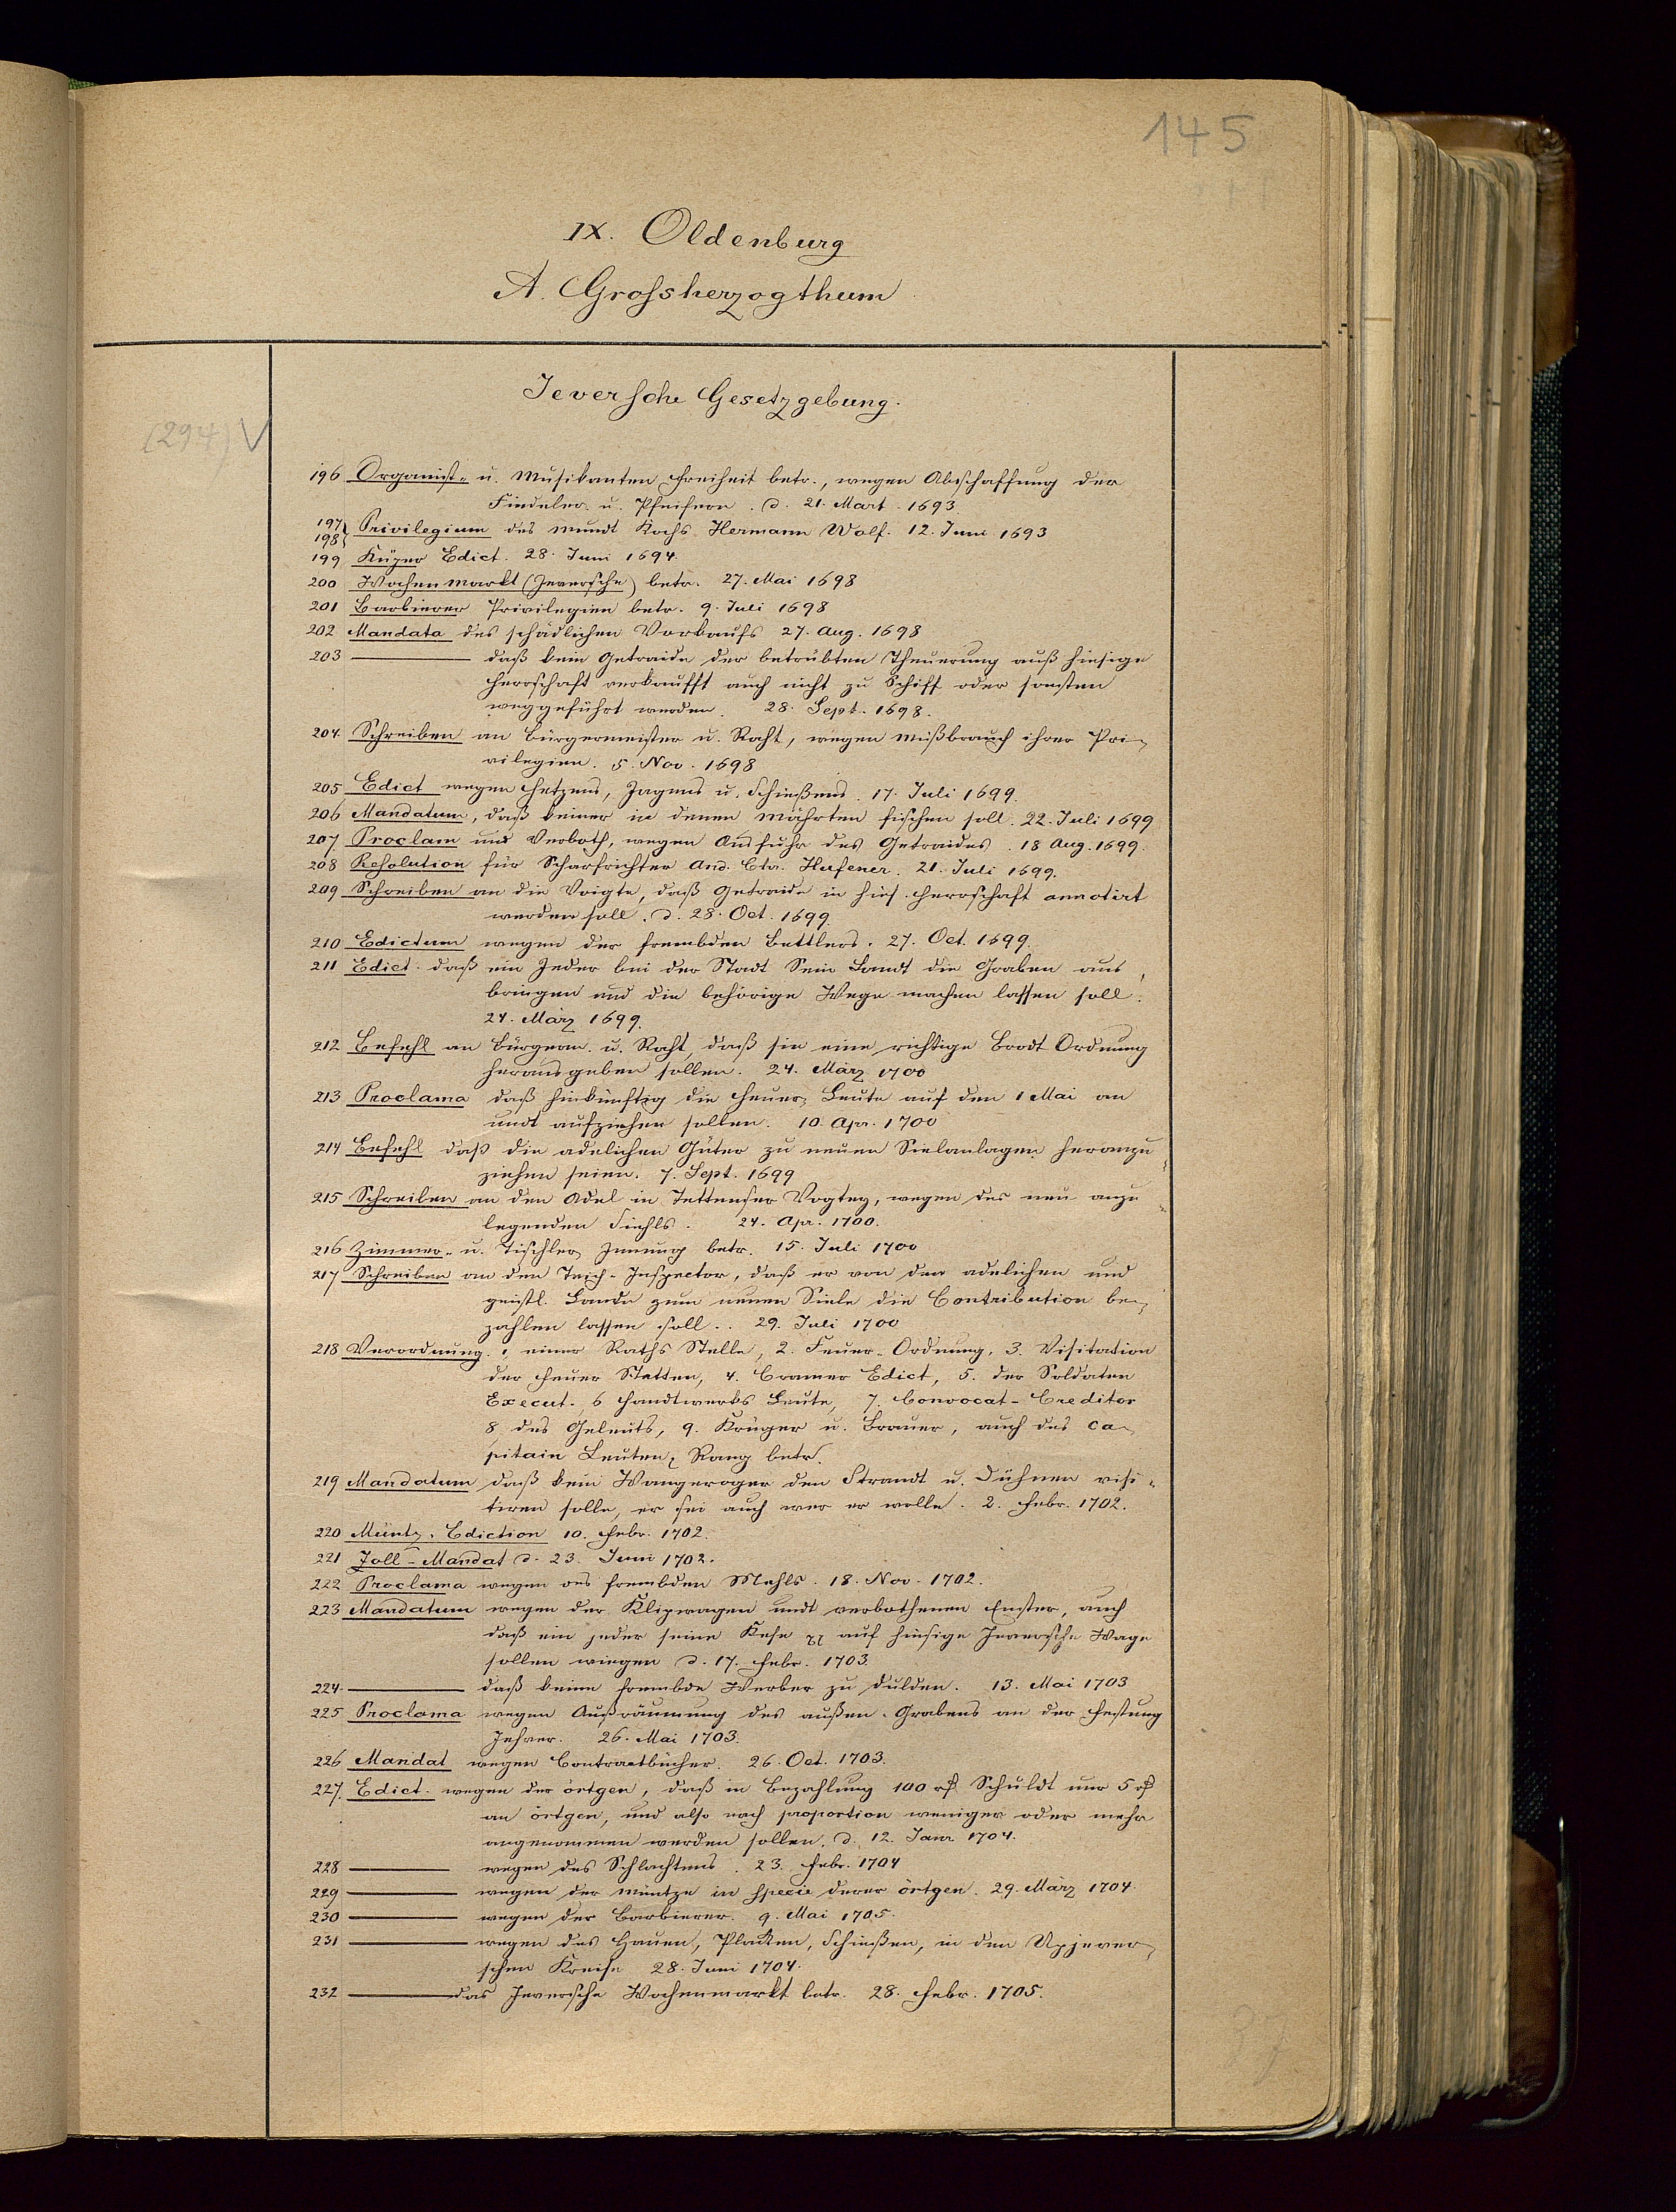 145
IX. Oldenburg
A. Grossherzogthum
Jeversche Gesetzgebung.
(294) V
196 Organist- u. Musikanten Freiheit betr., wegen Abschaffung der
Fiedeler u. Pfeifern. d. 21. Mart. 1693.
197 198 Privilegium des Mundt Kochs Hermann Wolf. 12. Juni 1693
199 Küper Edict. 28. Juni 1694.
200 Wochenmarkt (Jeversche) betr. 27. Mai 1698
201 Barbierer Privilegien betr. 9. Juli 1698
202 Mandata des schädlichen Vorkaufs 27. Aug. 1698
203 ——— daß kein Getraide der betrübten Theuerung auß hiesige
Herrschaft verkaufft auch nicht zu Schiff oder sonsten
weggeführt werden. 28. Sept. 1698.
204. Schreiben an Bürgermeister u. Raht, wegen Mißbrauch ihrer Pri-
vilegien. 5. Nov. 1698
205 Edict wegen Hetzens, Jagens u. Schießens. 17. Juli 1699.
206 Mandatum, daß keiner in denen Mährten fischen soll. 22. Juli 1699
207 Proclam und Verboth, wegen Ausfuhr des Getraides. 18 Aug. 1699.
208 Resolution für Scharfrichter And. Hafener. 21. Juli 1699.
209 Schreiben an die Voigte, daß Getraide in hies. Herrschaft annotirt
werden soll. d. 28. Oct. 1699.
210 Edictum wegen der frembden Bettlers. 27. Oct. 1699.
211 Edict. daß ein Jeder bei der Stadt Sein Landt die Graben aus
bringen und die behörige Wege machen lassen soll.
24. März 1699.
212 Befehl an Bürgerm. u. Raht, daß sie eine richtige Brodt Ordnung
herausgeben sollen. 24. März 1700
213 Proclama daß hinkünftig die Heuer-Leute auf den 1 Mai an
undt aufziehen sollen. 10. Apr. 1700
214 Befehl daß die adelichen Güter zu neuen Sielanlagen heranzu
ziehen seien. 7. Sept. 1699
215 Schreiben an den Adel in Tettenser Vogtey, wegen des neu anzu-
legenden Siehls. 24. Apr. 1700.
216 Zimmer- u. Tischler Innung betr. 15. Juli 1700
217 Schreiben an den Teich-Inspector, daß er von den adelichen und
geistl. Lande zum neuen Siele die Contribution be-
zahlen lassen soll.. 29. Juli 1700
218 Verordnung. 1, einer Raths Stelle, 2. Feuer-Ordnung, 3. Visitation
der Feuer Stetten, 4. Cramer Edict, 5. der Soldaten
Execut., 6 Handtwerks Leute, 7. Convocat-Creditor
8, des Geleuts, 9. Krüger u. Brauer, auch des Ca-
pitain Leuten, Rang betr.
219 Mandatum daß kein Wangeroger den Strandt u. Dühnen visi-
tiren solle, er sei auch wer er wolle. 2. Febr. 1702.
220 Müntz-Ediction 10. Febr. 1702.
221 Zoll-Mandat d. 23. Juni 1702.
222 Proclama wegen des frembden Mehls. 18. Nov. 1702.
223 Mandatum wegen der Klipwagen undt verbothenen auch
daß ein jeder seine Kese auf hiesige Jeversche Wage
sollen wiegen d. 17. Febr. 1703.
224. ——— daß keine frembde Werber zu dulden. 13. Mai 1703
225 Proclama wegen Außräumung des außen-Grabens an der Festung
Jehver. 26. Mai 1703.
226 Mandat wegen Contractbücher. 26. Oct. 1703.
227. Edict. wegen der örtgen, daß in Bezahlung 100 rf Schuldt nur 5 rf
an örtgen, und also nach proportion weniger oder mehr
angenommen werden sollen. d. 12. Janr 1704.
228 ——— wegen des Schlachtens. 23. Febr. 1704
229 ——— wegen der Müntze in specie derer örtgen. 29. März 1704.
230 ——— wegen der Barbierer. 9. Mai 1705.
231 ——— wegen des Hauen, Placken, Schießen, in den Upjever-
schen Kreise 28. Juni 1704.
232 ——— das Jeversche Wochenmarkt betr. 28. Febr. 1705.
37